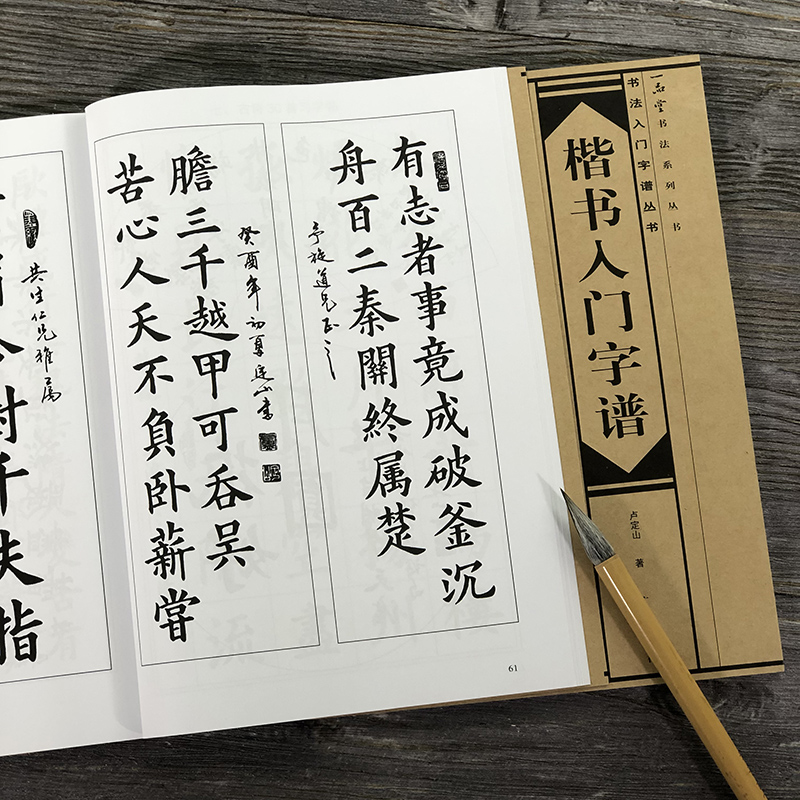 一品堂书法系列丛书
书法入门字谱丛书
楷书入门字谱
卢定山 著
有志者事竟成破釜沉
舟百二秦關終属楚
亭旋道兄正之
苦心人天不負卧薪嘗
膽三千越甲可吞吴
癸酉年初夏定山書
共生仁兄雅属
千夫指
61